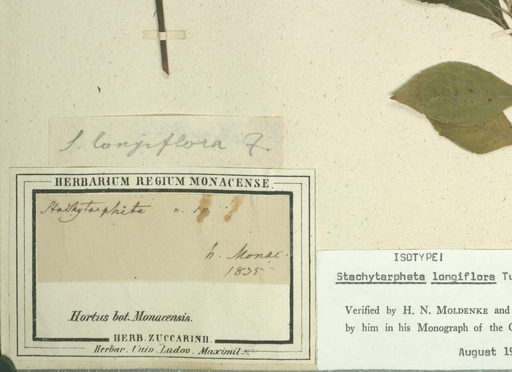 S. longiflora T.
HERBARIUM REGIUM MONACENSE.
Stachytarpheta n. sp.
h. Monac.
1835
Hortus bot. Monacensis.
HERB. ZUCCARINII.
Herbar. Univ. Ludov. Maximil.
ISOTYPE!
Stachytarpheta longiflora Tu
Verified by H. N. MOLDENKE and
by him in his Monograph of the
August 19